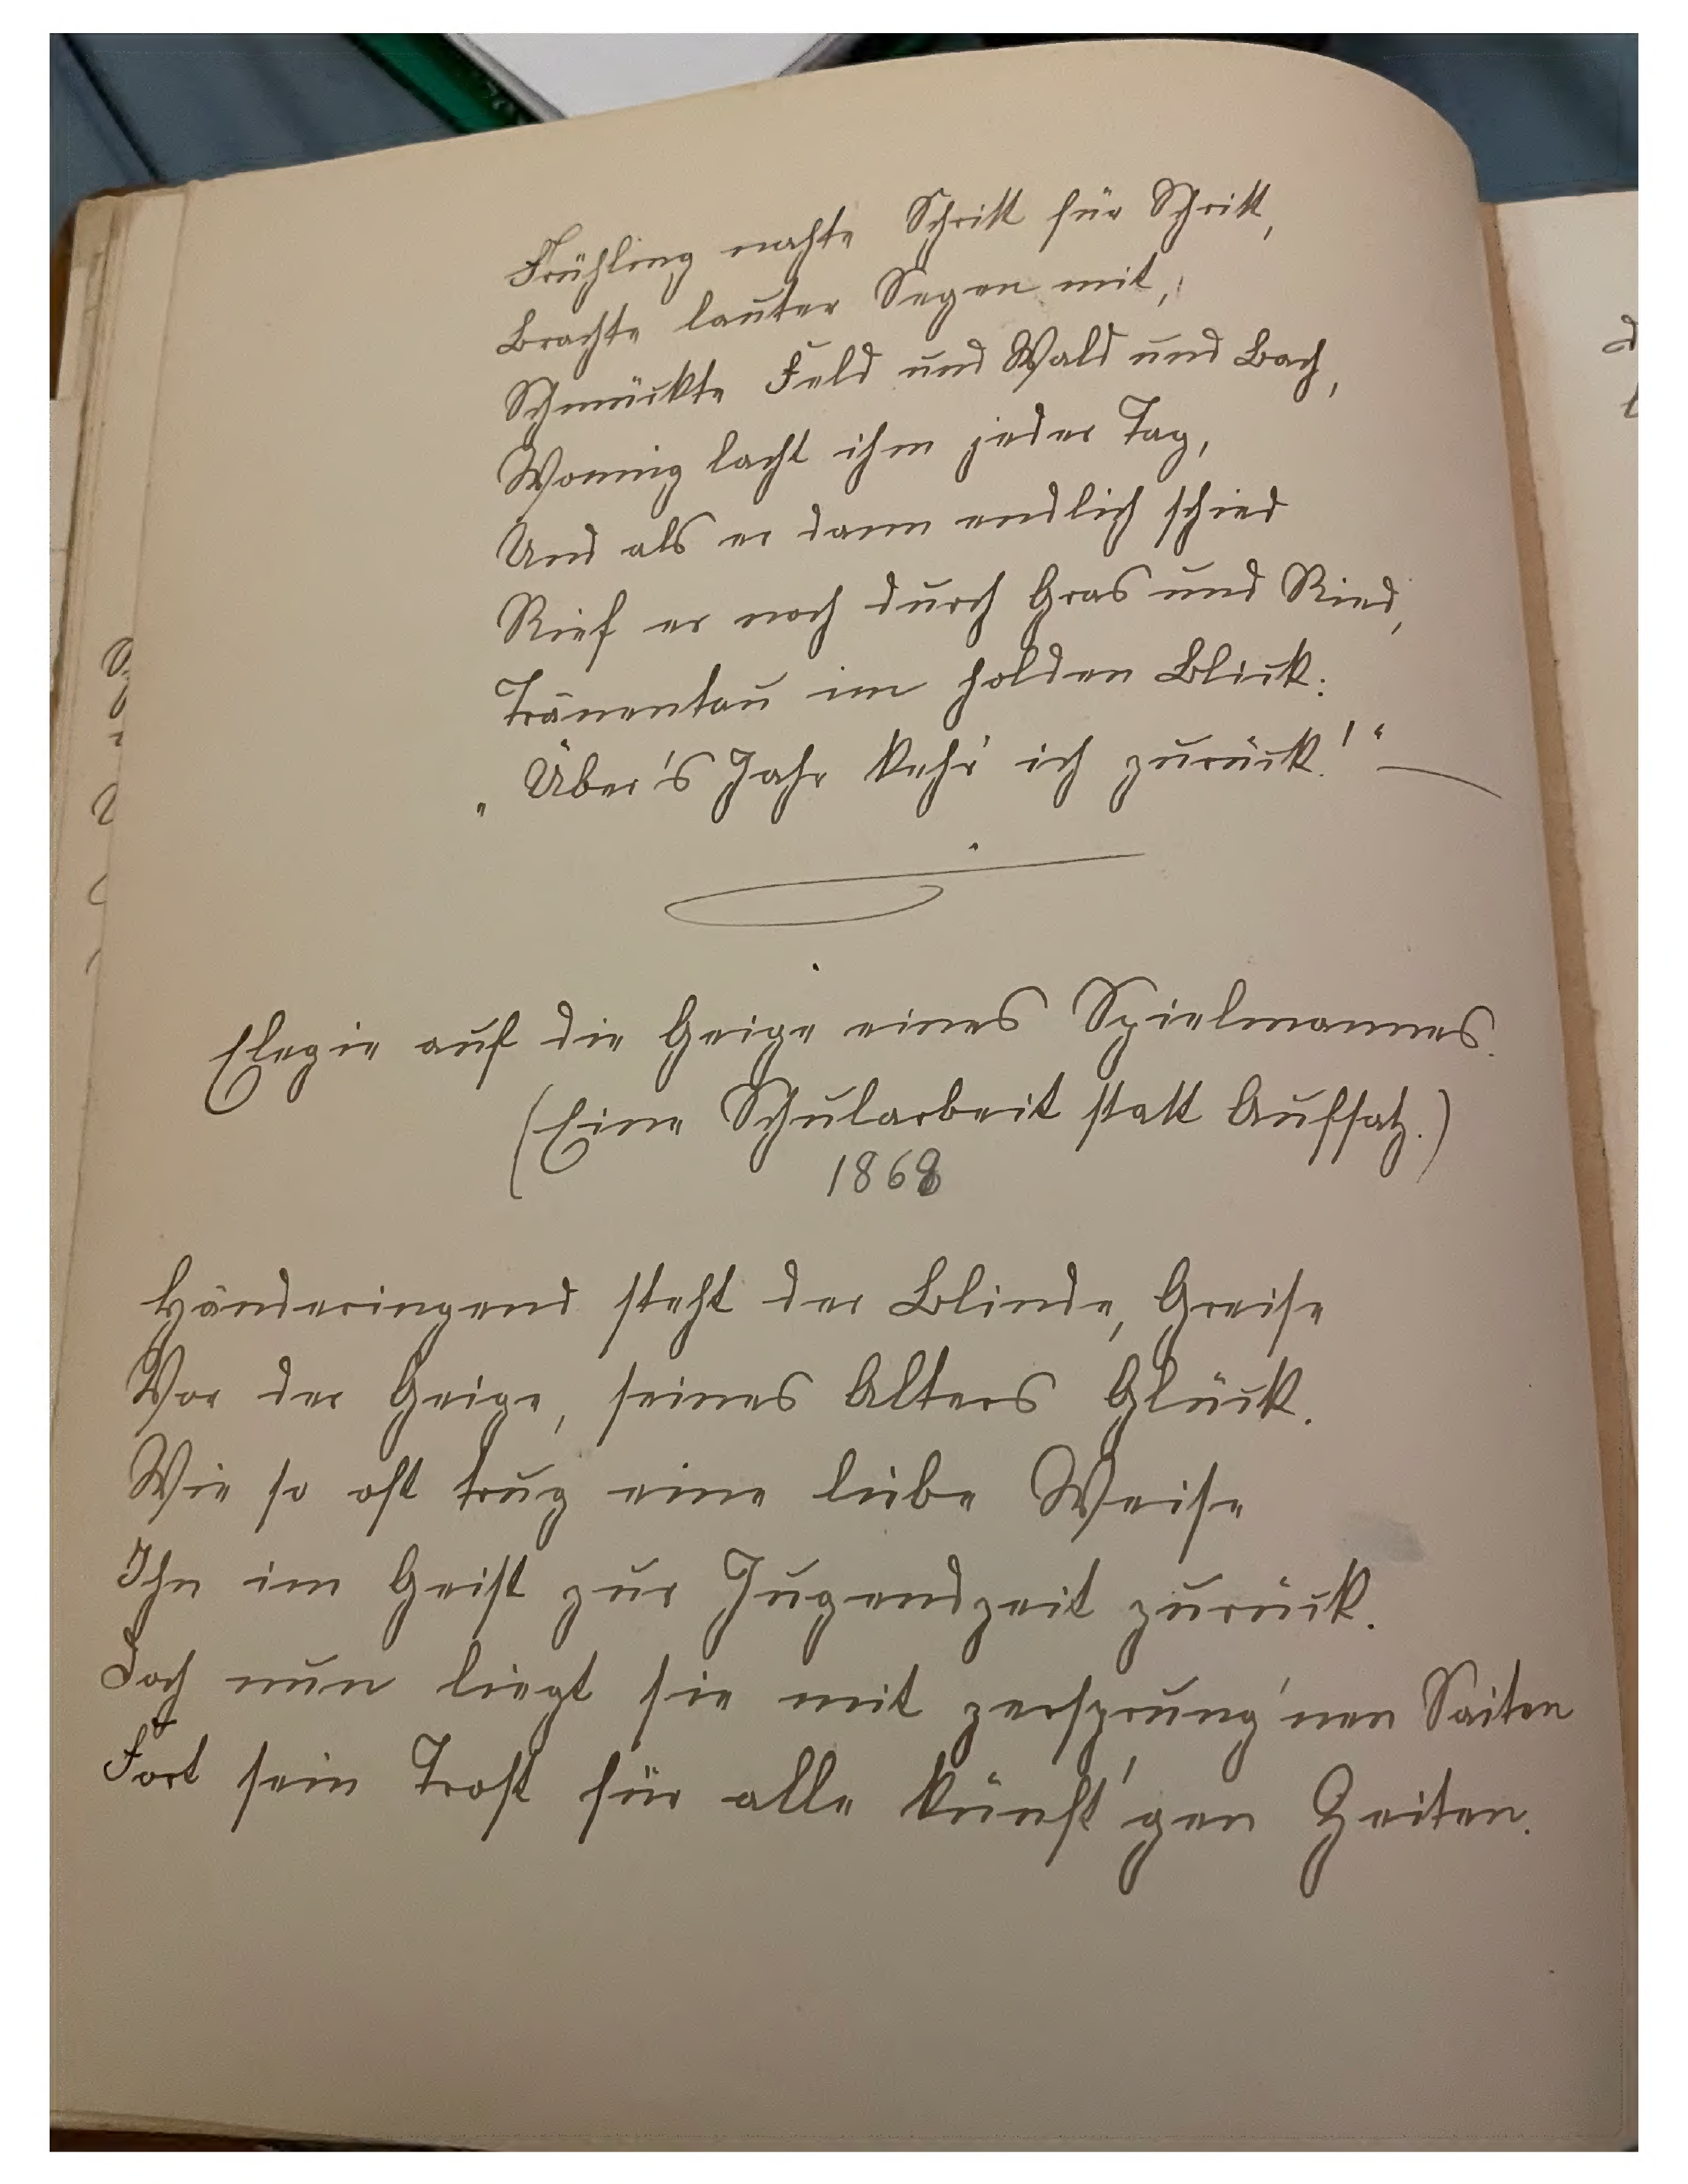 Frühling nahte Schritt für Schritt,
Brachte lauter Segen mit,
Schmückte Feld und Wald und Bach,
Wonnig lacht ihm jeder Tag,
Und als er dann endlich schied
Rief er noch durch Gras und Ried,
Tränentau im holden Blick:
„Über's Jahr kehr' ich zurück!“ —
Elegie auf die Geige eines Spielmannes.
(Eine Schularbeit statt Aufsatz.)
1868
Händeringend steht der Blinde, Greise
Vor der Geige, seines Alters Glück.
Wie so oft trug eine liebe Weise
Ihn im Geist zur Jugendzeit zurück.
Doch nun liegt sie mit zersprung'nen Saiten
Fort sein Trost für alle künft'gen Zeiten.